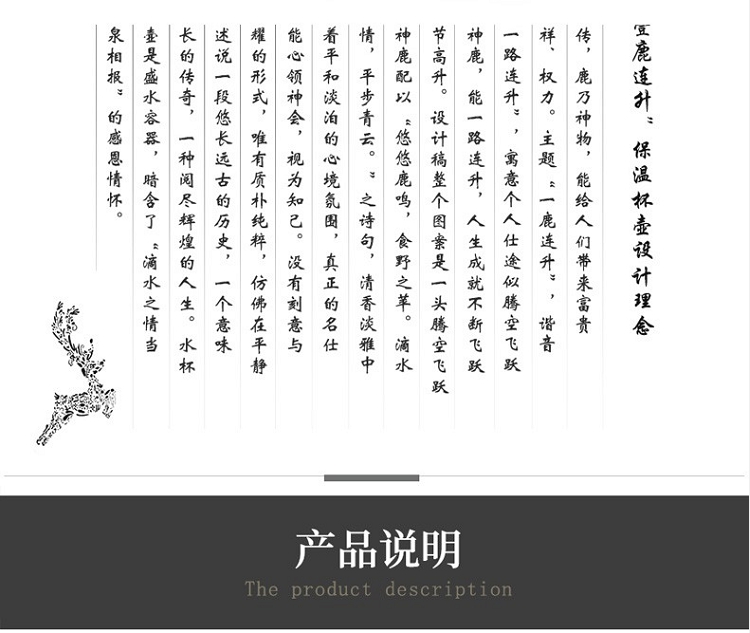 壹鹿连升”保温杯壶设计理念
传，鹿乃神物，能给人们带来富贵
祥、权力。主题“一鹿连升”，谐音
一路连升”，寓意个人仕途似腾空飞跃
神鹿，能一路连升，人生成就不断飞跃
节高升。设计稿整个图案是一头腾空飞跃
神鹿配以“悠悠鹿鸣，食野之苹。滴水
情，平步青云。”之诗句，清香淡雅中
着平和淡泊的心境氛围，真正的名仕
能心领神会，视为知己。没有刻意与
耀的形式，唯有质朴纯粹，仿佛在平静
述说一段悠长远古的历史，一个意味
长的传奇，一种阅尽辉煌的人生。水杯
壶是盛水容器，暗含了“滴水之情当
泉相报”的感恩情怀。
产品说明
The product description